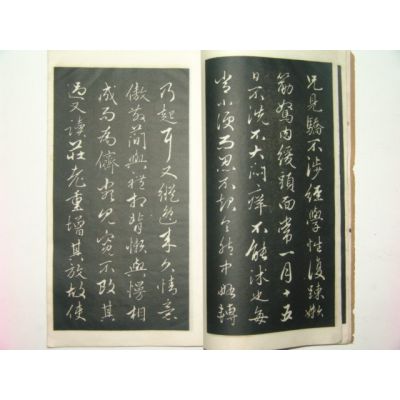 兄見驕不涉經學性復疎嬾
筋駑肉緩頭面常一月十五
日不洗不大悶癢不能沐也每
當小便而忍不起令胞中略轉
乃起耳又縱逸來久情意
傲散簡與禮相背懶與慢相
成而為儕類見寬不攻其
過又讀莊老重增其放故使